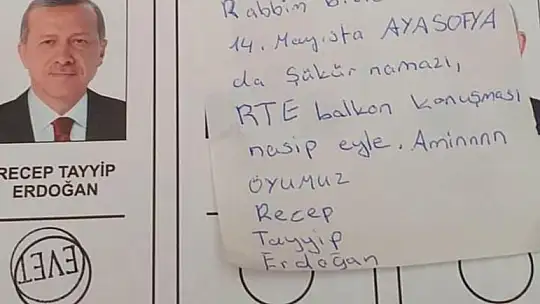 RECEP TAYYİP
ERDOĞAN
EVET
Rabbim
14. Mayısta AYASOFYA
da Şükür namazı,
RTE balkon konuşması
nasip eyle. Aminnnn
OYUMUZ
Recep
Tayyip
Erdoğan